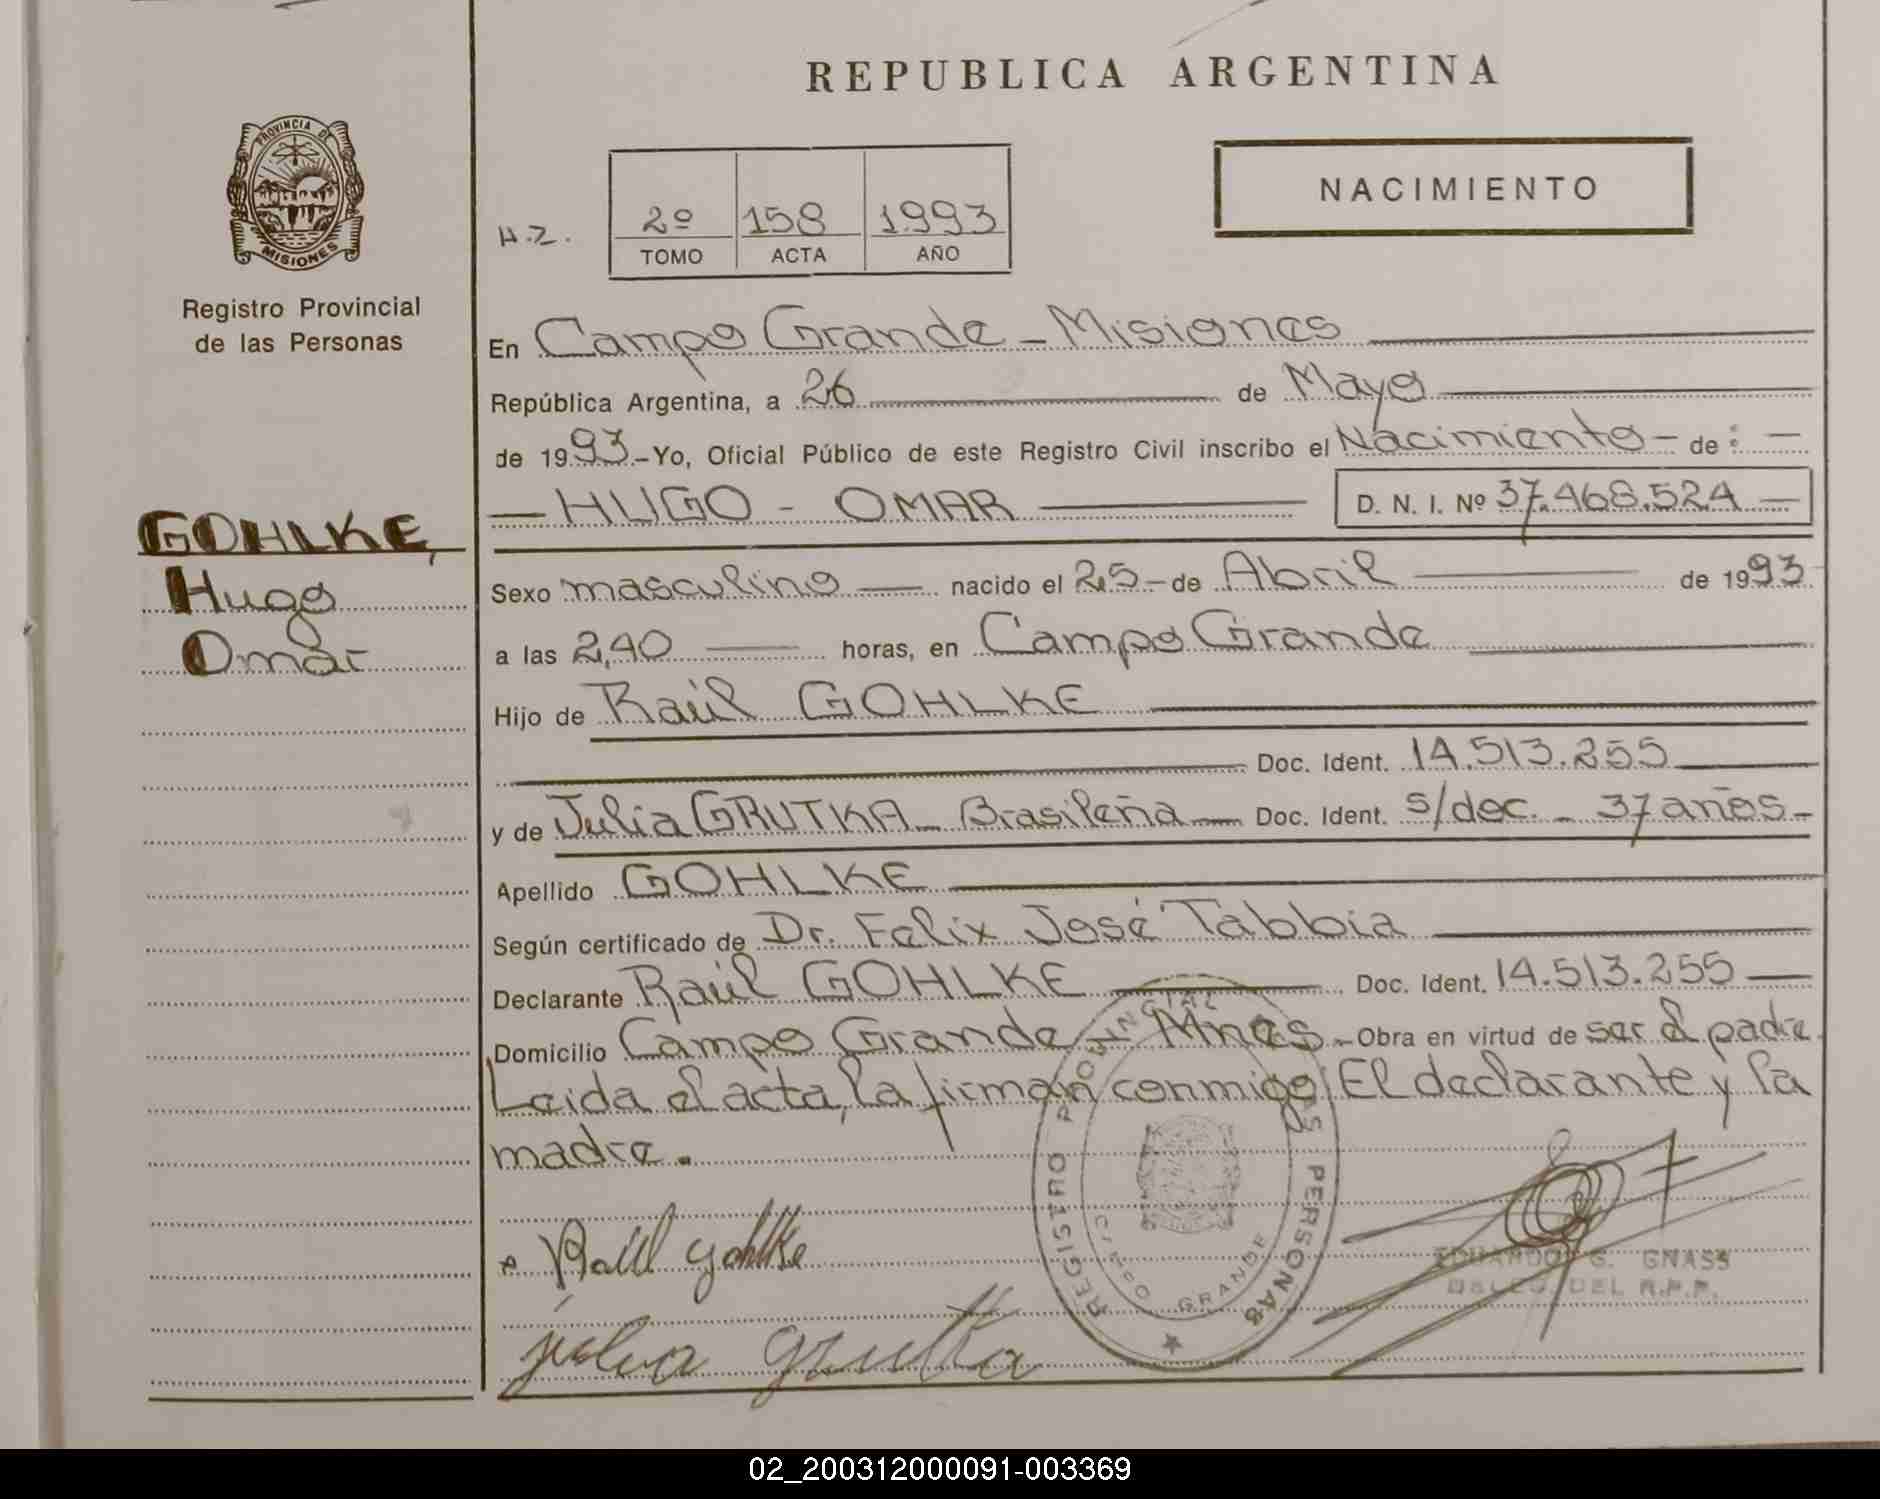 REPUBLICA ARGENTINA
PROVINCIA DE
MISIONES
Registro Provincial
de las Personas
H.Z.
2º 158 1.993
TOMO ACTA AÑO
NACIMIENTO
En Campo Grande - Misiones
República Argentina, a 26 de Mayo
de 1993 - Yo, Oficial Público de este Registro Civil inscribo el Nacimiento - de : -
- HUGO - OMAR - D. N. I. Nº 37.468.524 -
GOHLKE,
Hugo
Omar
Sexo masculino - nacido el 25 - de Abril - de 1993
a las 2,40 - horas, en Campo Grande
Hijo de Raúl GOHLKE
Doc. Ident. 14.513.255
y de Julia GRUTKA - Brasileña - Doc. Ident. s/doc. - 37 años -
Apellido GOHLKE
Según certificado de Dr. Felix José Tabbia
Declarante Raúl GOHLKE - Doc. Ident. 14.513.255 -
Domicilio Campo Grande - Mnes. - Obra en virtud de ser el padre
Leida el acta, la firman conmigo: El declarante y la
madre.
REGISTRO PROVINCIAL LAS PERSONAS
CAMPO GRANDE
Raúl Gohlke
julia grutka
EDUARDO G. GNASS
DEL R.P.P.
02_200312000091-003369